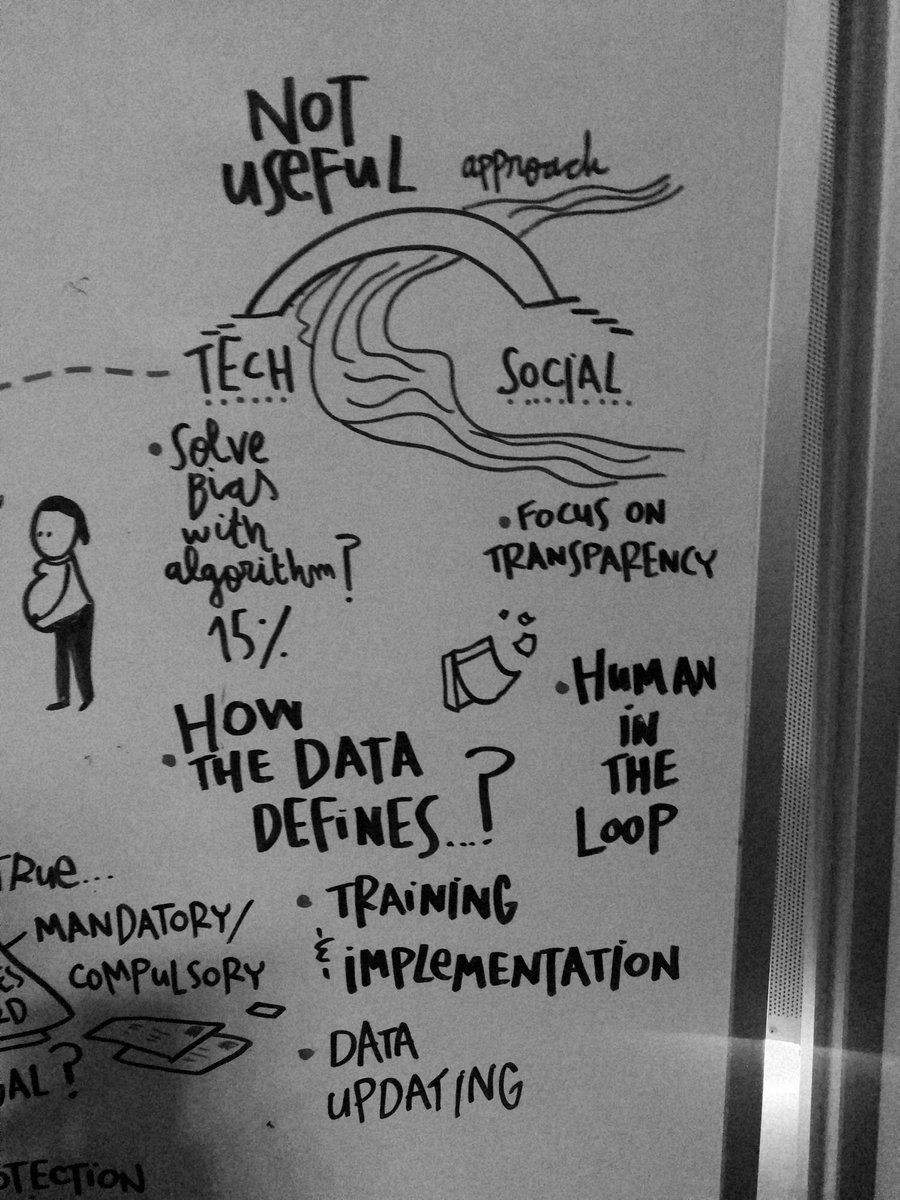 NOT
useful approach
TECH
SOCIAL
• Solve
Bias
with
algorithm?
15%
• FOCUS ON
TRANSPARENCY
• HUMAN
IN
THE
LOOP
HOW
• THE DATA
DEFINES...?
TRUE...
MANDATORY/
COMPULSORY
• TRAINING
& IMPLEMENTATION
• DATA
UPDATING